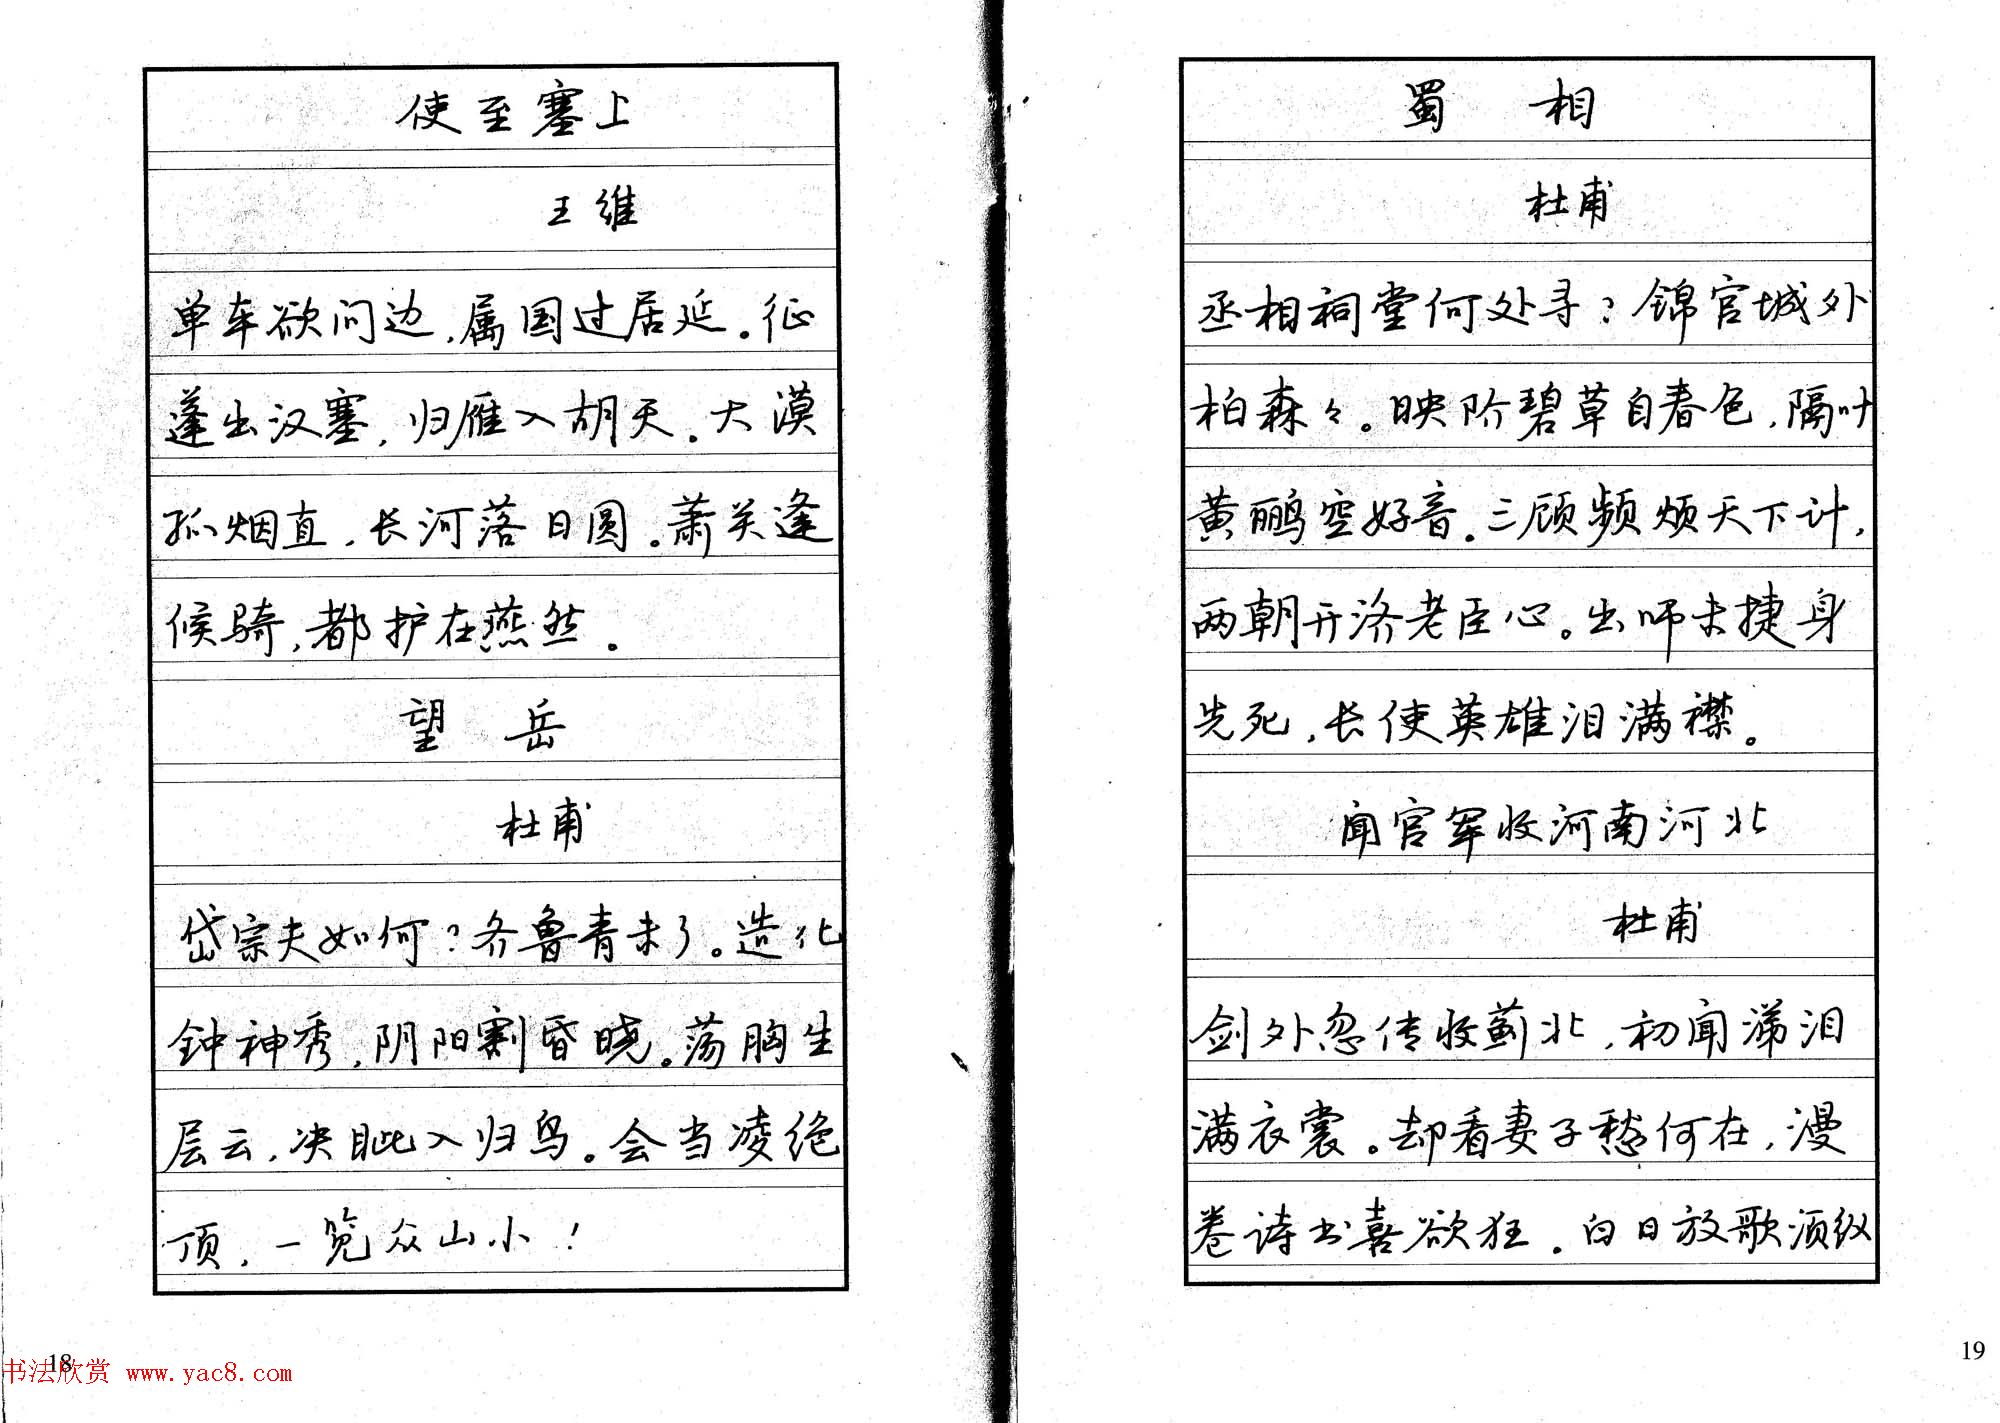 使至塞上
王维
单车欲问边，属国过居延。征
蓬出汉塞，归雁入胡天。大漠
孤烟直，长河落日圆。萧关逢
候骑，都护在燕然。
望岳
杜甫
岱宗夫如何？齐鲁青未了。造化
钟神秀，阴阳割昏晓。荡胸生
层云，决眦入归鸟。会当凌绝
顶，一览众山小！
18
书法欣赏 www.yac8.com
蜀相
杜甫
丞相祠堂何处寻？锦官城外
柏森々。映阶碧草自春色，隔叶
黄鹂空好音。三顾频烦天下计，
两朝开济老臣心。出师未捷身
先死，长使英雄泪满襟。
闻官军收河南河北
杜甫
剑外忽传收蓟北，初闻涕泪
满衣裳。却看妻子愁何在，漫
卷诗书喜欲狂。白日放歌须纵
19